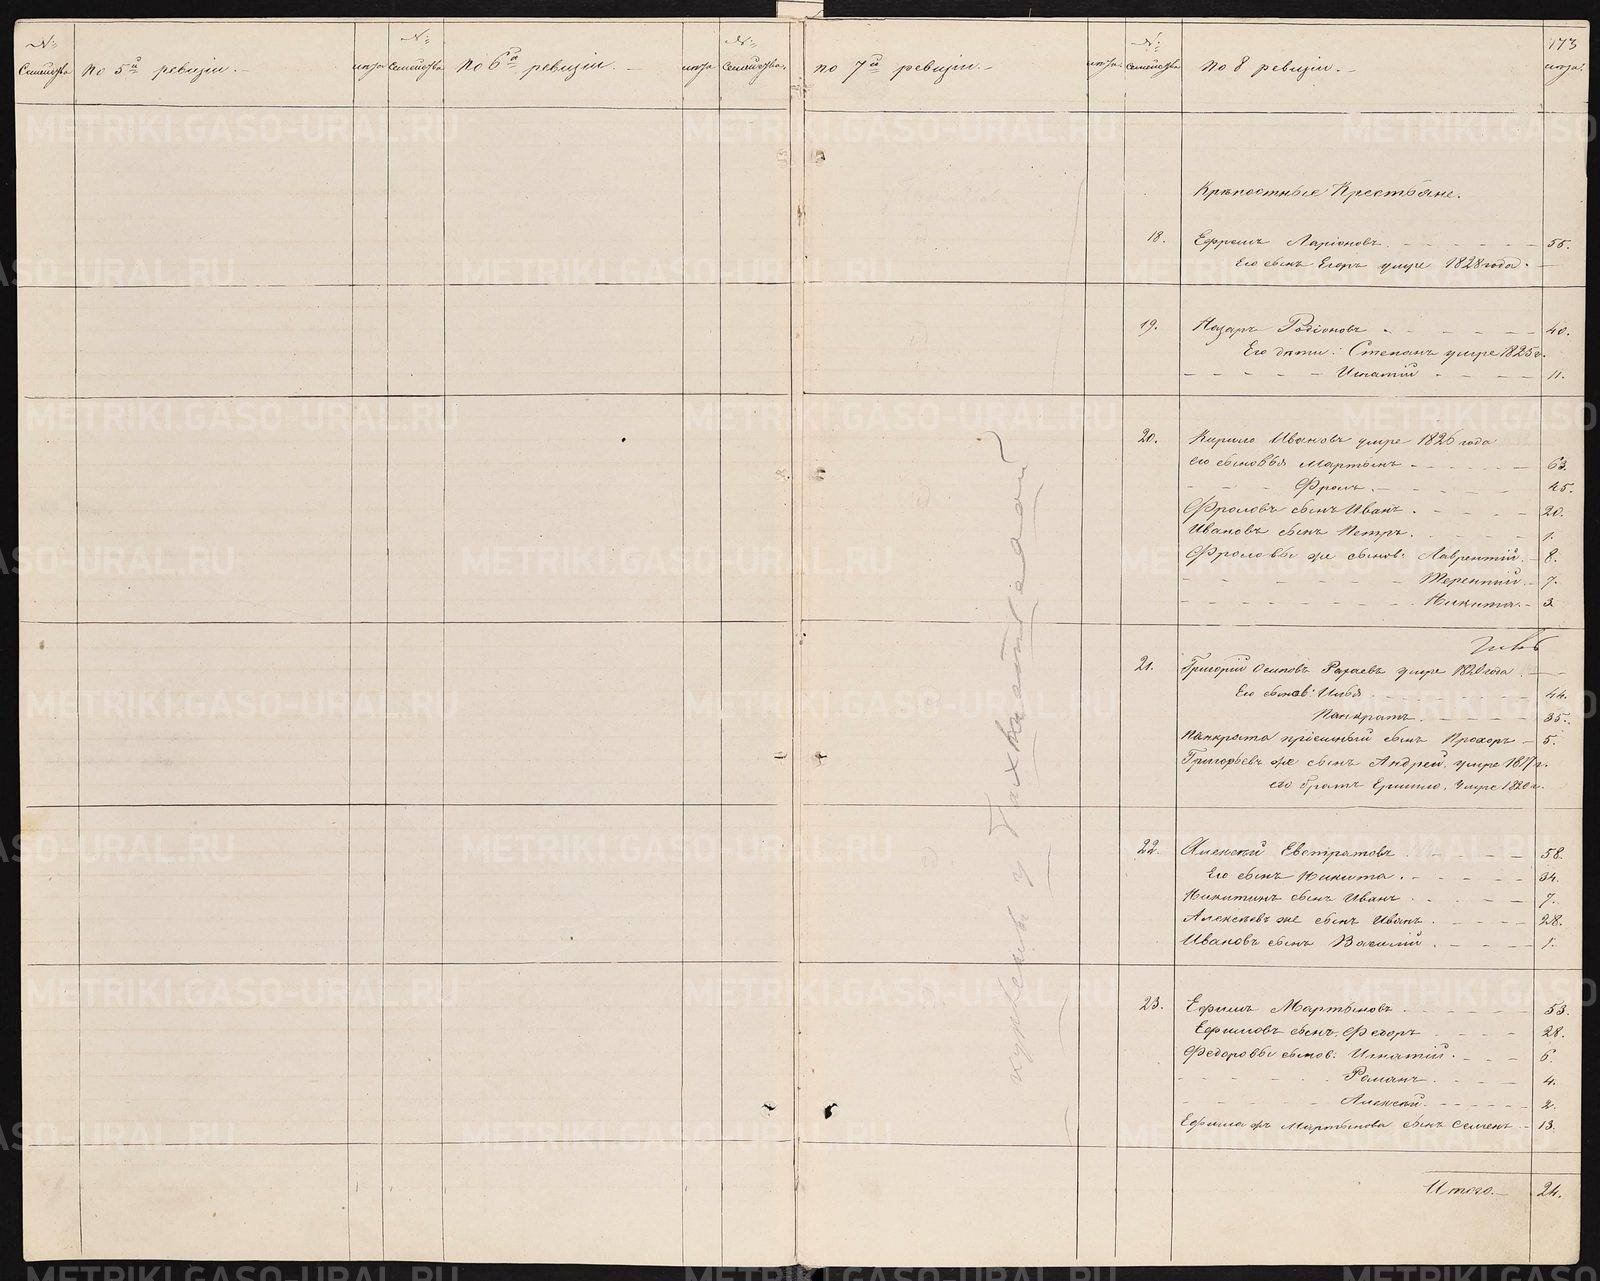 173
№ Семейства По 5й ревизіи. — число № Семейства По 6й ревизіи. — число № Семейства по 7й ревизіи. — число № Семейства По 8 ревизіи. — число
Крѣпостные Крестьяне.
18. Ефремъ Ларіоновъ. 55.
Его сынъ Егоръ умре 1828 года.
19. Назаръ Родіоновъ 40.
Его дѣти: Степанъ умре 1825 г.
Игнатій 11.
20. Кирило Ивановъ умре 1826 года
его сыновья Мартынъ 63.
Фролъ 45.
Фроловъ сынъ Иванъ 20.
Ивановъ сынъ Петръ. 1.
Фроловы же сынов: Лаврентій 8.
Терентій 7.
Никита 3.
21. Григорій Осиповъ умре года
Его сынов: Илья 44.
Панкратъ 35.
Панкрата пріемный сынъ Прохоръ 5.
Григорьевъ же сынъ Андрей, умре г.
его братъ Ермило, умре 1820 г.
22. Алексѣй Евстратовъ 58.
Его сынъ Никита 34.
Никитинъ сынъ Иванъ 7.
Алексѣевъ же сынъ Иванъ 28.
Ивановъ сынъ Василій 1.
23. Ефимъ Мартыновъ 53.
Ефимовъ сынъ Федоръ 28.
Федоровы сынов: Игнатій 6.
Романъ 4.
Алексѣй 2.
Ефима жъ Мартынова сынъ Семенъ 13.
Итого. 24.
METRIKI.GASO-URAL.RU